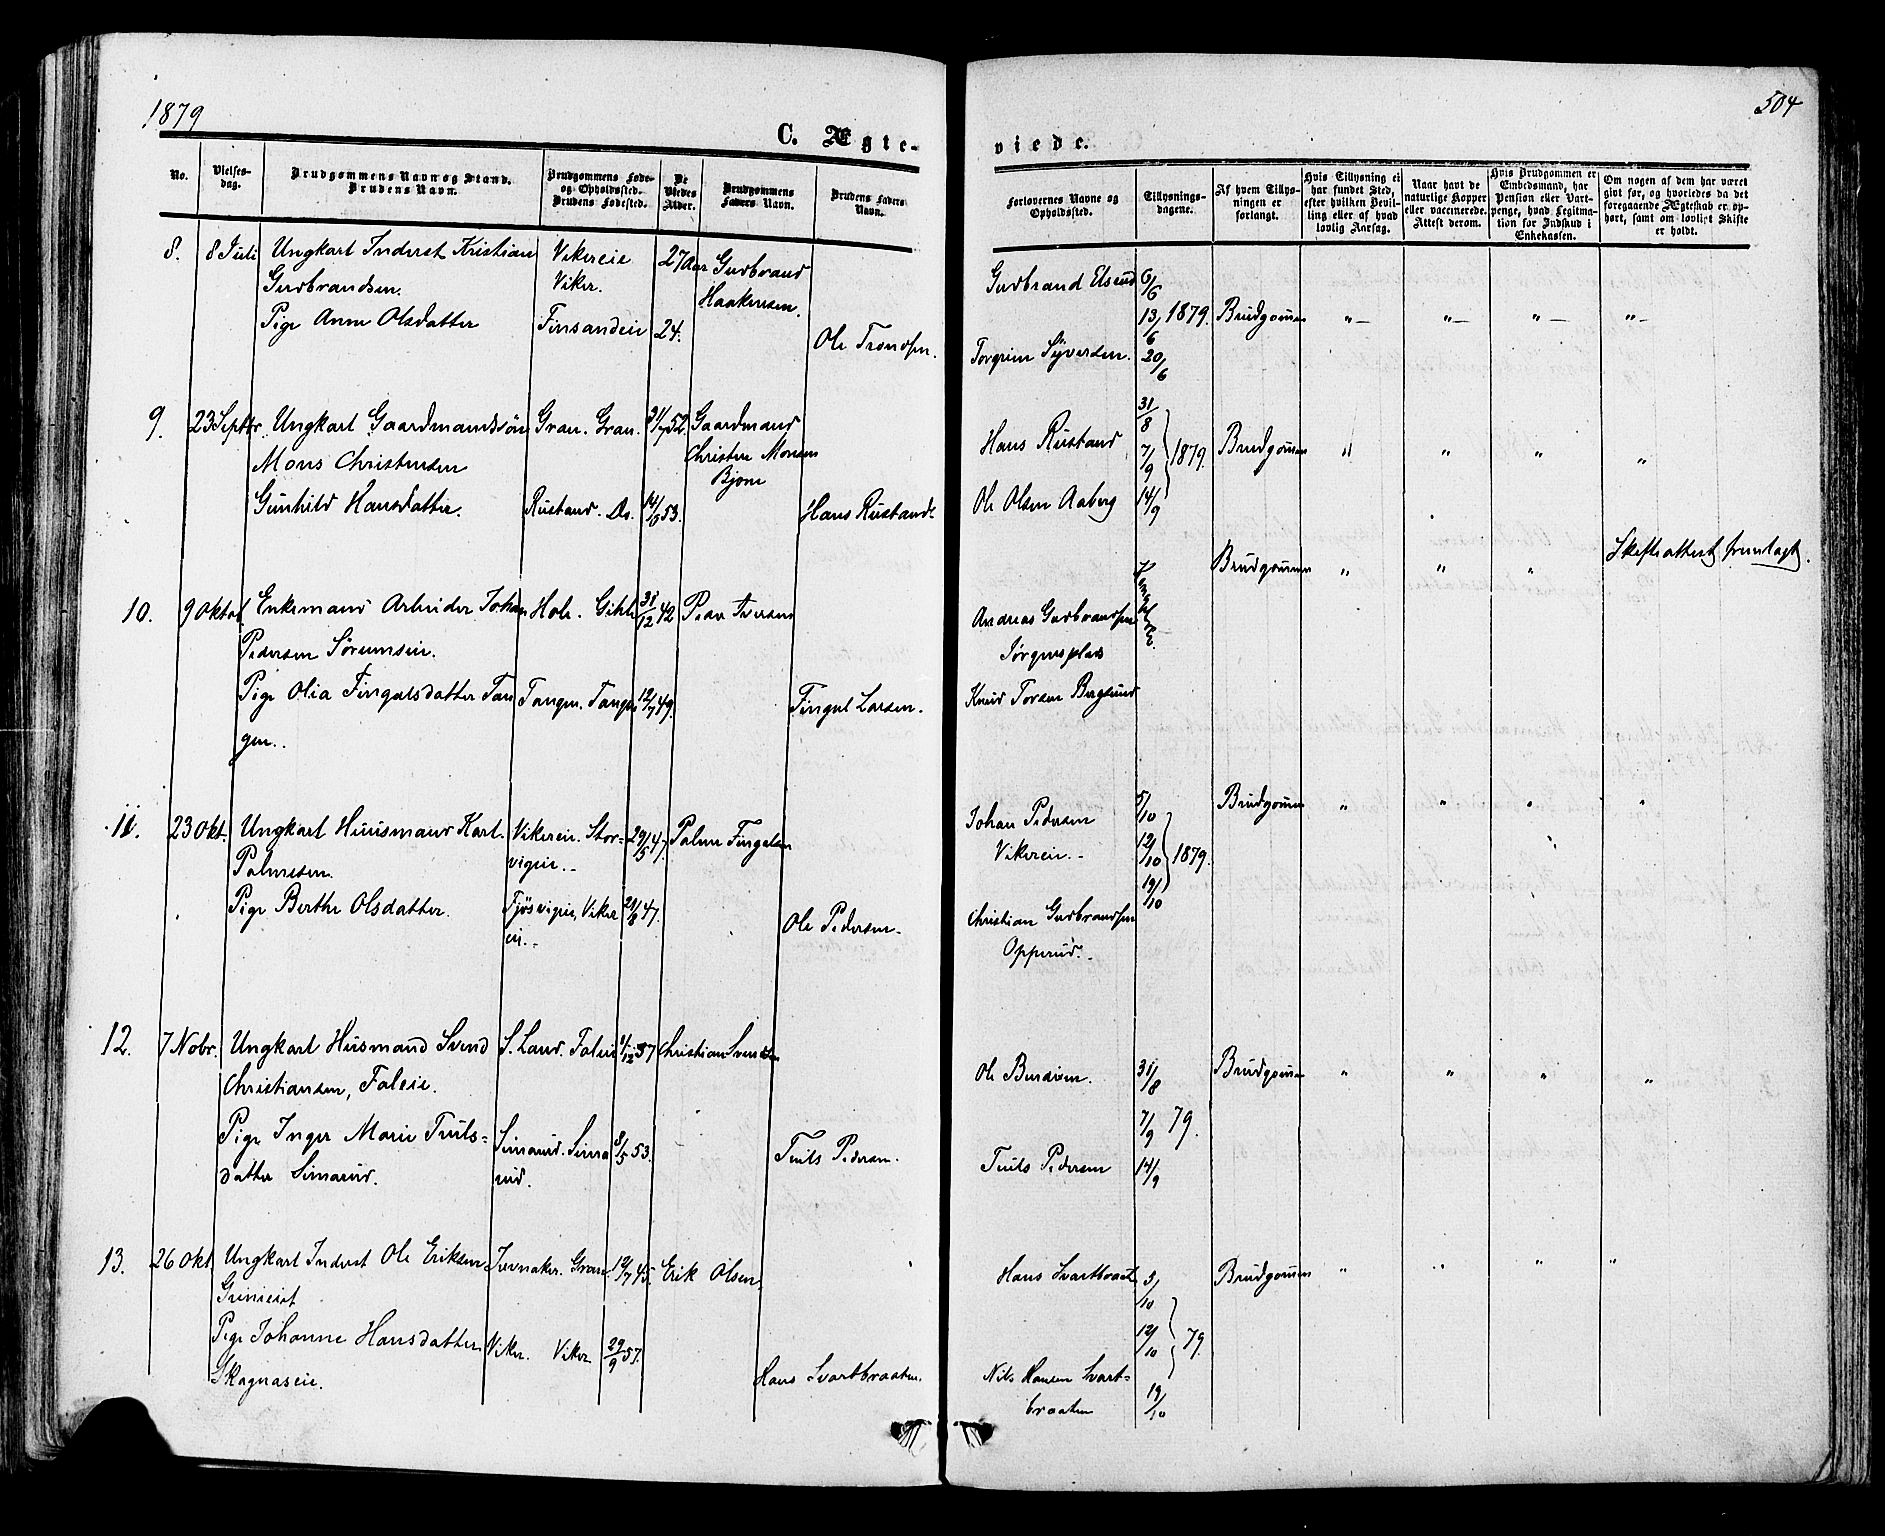 1879
504
C. Ægteviede.
No.
Vielses-
dag.
Brudgommens Navn og Stand.
Brudens Navn.
Brudgommens Føde-
og Opholdssted.
Brudens Fødested.
De
Viedes
Alder.
Brudgommens
Faders Navn.
Brudens Faders
Navn.
Forlovernes Navne og
Opholdssted.
Tillysnings-
dagene.
Af hvem Tillys-
ningen er
forlangt.
Hvis Tillysning ei
har fundet Sted,
efter hvilken Bevil-
ling eller af hvad
lovlig Aarsag.
Naar havt de
naturlige Kopper
eller vaccinerede.
Attest derom.
Hvis Brudgommen er
Embedsmand, har
Pension eller Vart-
penge, hvad Legitima-
tion for Indskud i
Enkekassen.
Om nogen af dem har været
gift før, og hvorledes da det
foregaaende Ægteskab er op-
hørt, samt om lovligt Skifte
er holdt.
8. 8 Juli Ungkarl Inderst Kristian
Gudbrandsen.
Vikereie
Viker.
27 Aar
Gudbrand
Haakensen.
Pige Anne Olsdatter Finsandeie 24.
Ole Trondsen.
Gudbrand Elsrud
Torgrim Syversen.
6/6
13/6 1879.
20/6
Brudgommen "– "– "– "–
9. 23 Septbr. Ungkarl Gaardmandssøn
Mons Christensen
Gran. Gran. 31/7 52.
Gaardmand
Christen Monsen
Bjone
Gunhild Hansdatter. Rustand. Do. 14/6 53.
Hans Rustand
Hans Rustand
Ole Olsen Aaberg
31/8
7/9 1879.
14/9
Brudgommen " " " "
10. 9 Oktob Enkemand Arbeider Johan
Pedersen Sørumseie.
Hole. Gihle 31/12 42 Peder Iversen
Pige Olia Fingalsdatter Tan
gen..
Tangen. Tangen 12/7 49.
Fingal Larsen.
Andreas Gudbrandsen
Jørgensplads
Knud Torsen Berglund
Brudgommen " " " Skifteattest fremlagt.
11. 23 Okt. Ungkarl Huusmand Karl
Palmesen.
Vikereie. Stor-
vigeie.-
29/5 47. Palme Fingalsen
Pige Berthe Olsdatter. Fjøsvigeie, Viker
eie.- 21/8 47.
Ole Pedersen.
Johan Pedersen
Vikereie.-
Christian Gudbrandsen
Opperud.-
5/10
12/10 1879.
19/10
Brudgommen " " " "
12. 7 Nobr. Ungkarl Husmand Svend
Christiansen, Faleie.
S. Land. Faleie 1/12 57 Christian Svendsen
Pige Inger Marie Truls-
datter Simarud.
Simarud. Sima
rud. 8/5 53.
Truls Pedersen.
Ole Burdisen.
Truls Pedersen
31/8
7/9 79.
14/9
Brudgommen " " " "
13. 26 Okt Ungkarl Inderst Ole Eriksen
Jevnaker. Gran. 19/7 45. Erik Olsen.
Pige Johanne Hansdatter
Skagnaseie.
Viker. Viker 29/9 57.
Hans Svartbraaten.
Hans Svartbraaten
Nils Hansen Svart-
braaten
5/10
12/10 79.
19/10
Brudgommen " " " "